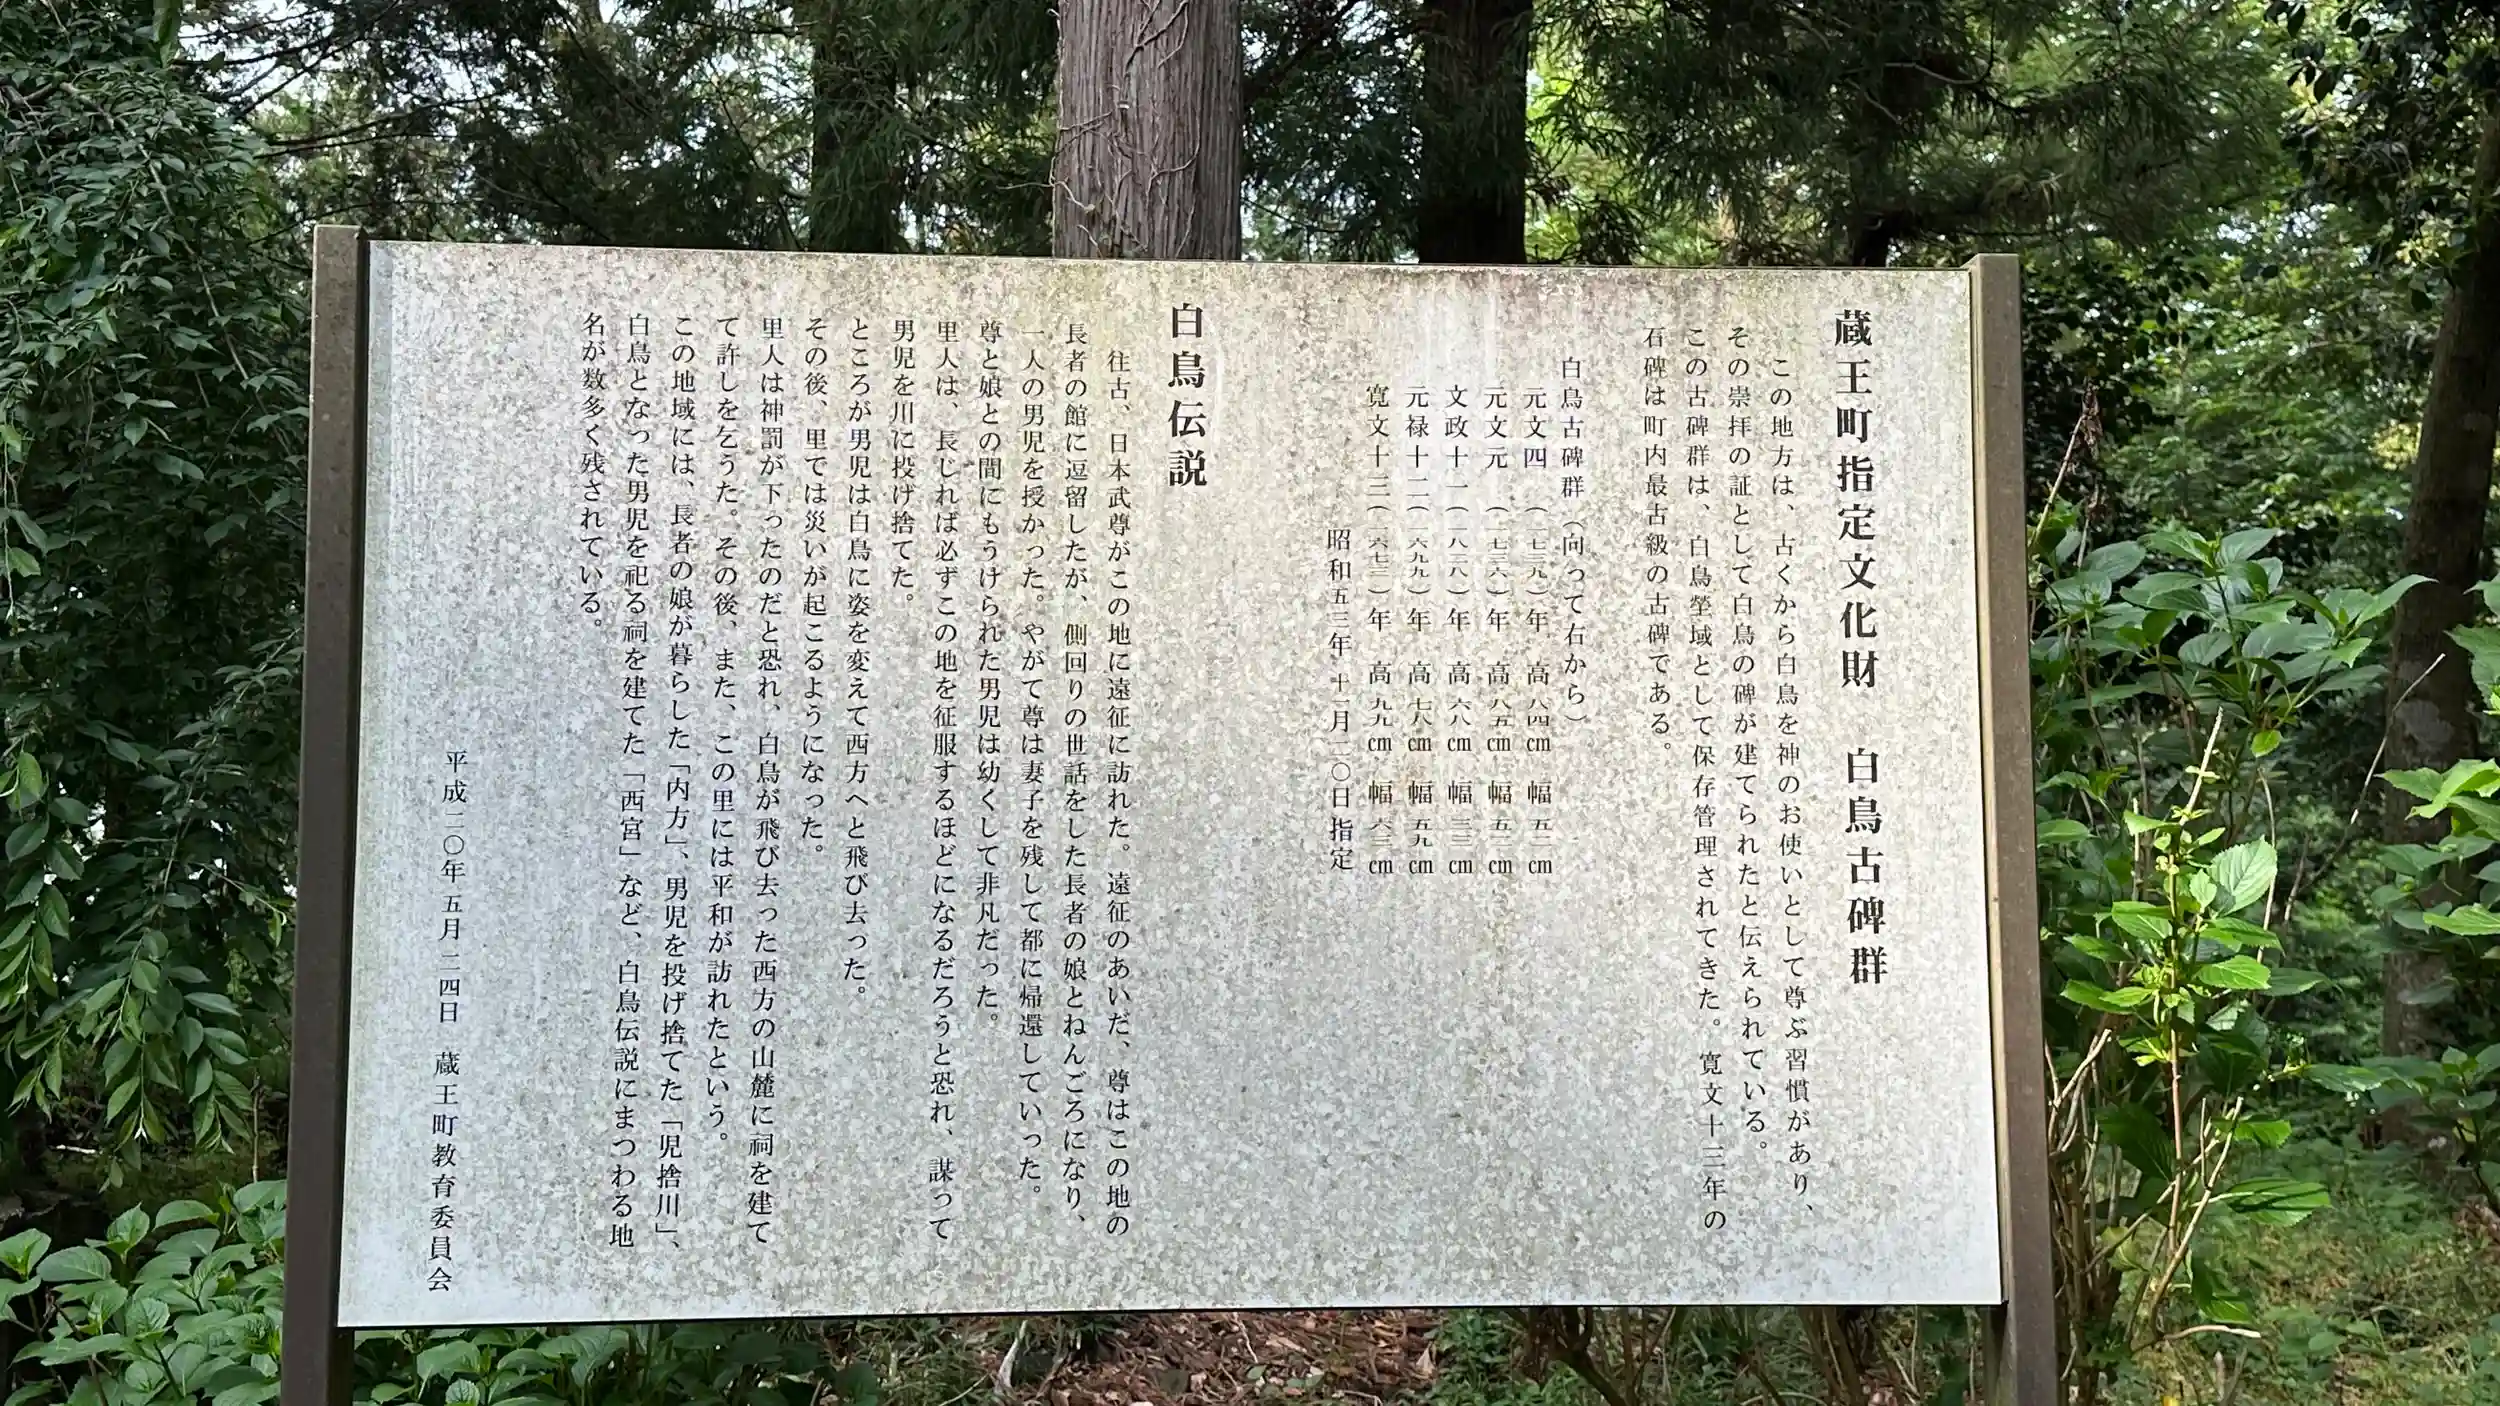 蔵王町指定文化財　白鳥古碑群
この地方は、古くから白鳥を神のお使いとして尊ぶ習慣があり、
その崇拝の証として白鳥の碑が建てられたと伝えられている。
この古碑群は、白鳥塋域として保存管理されてきた。寛文十三年の
石碑は町内最古級の古碑である。
白鳥古碑群（向って右から）
元文四（一七三九）年　高八四㎝　幅五二㎝
元文元（一七三六）年　高八五㎝　幅五二㎝
文政十一（一八二八）年　高六八㎝　幅三三㎝
元禄十二（一六九九）年　高七八㎝　幅五九㎝
寛文十三（一六七三）年　高九九㎝　幅六三㎝
昭和五三年十一月二〇日指定
白鳥伝説
往古、日本武尊がこの地に遠征に訪れた。遠征のあいだ、尊はこの地の
長者の館に逗留したが、側回りの世話をした長者の娘とねんごろになり、
一人の男児を授かった。やがて尊は妻子を残して都に帰還していった。
尊と娘との間にもうけられた男児は幼くして非凡だった。
里人は、長じれば必ずこの地を征服するほどになるだろうと恐れ、謀って
男児を川に投げ捨てた。
ところが男児は白鳥に姿を変えて西方へと飛び去った。
その後、里では災いが起こるようになった。
里人は神罰が下ったのだと恐れ、白鳥が飛び去った西方の山麓に祠を建て
て許しを乞うた。その後、また、この里には平和が訪れたという。
この地域には、長者の娘が暮らした「内方」、男児を投げ捨てた「児捨川」、
白鳥となった男児を祀る祠を建てた「西宮」など、白鳥伝説にまつわる地
名が数多く残されている。
平成二〇年五月二四日　蔵王町教育委員会